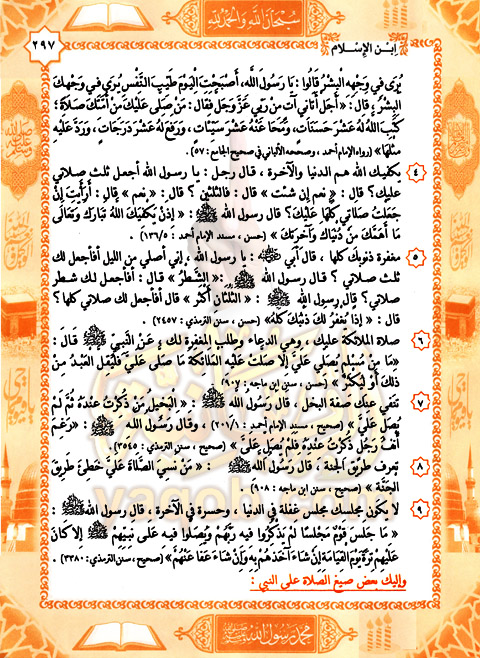 سُبْحَانَ اللَّه وَالْحَمْدُ لِلَّه
٢٩٧
اِبْن الإِسْلام
يُرَى فِي وَجْهِهِ الْبِشْرُ قَالُوا : يَا رَسُولَ اللَّهِ، أَصْبَحْتَ الْيَوْمَ طَيِّبَ النَّفْسِ يُرَى فِي وَجْهِكَ
الْبِشْرُ ، قَالَ : « أَجَلْ أَتَانِي آتٍ مِنْ رَبِّي عَزَّ وَجَلَّ فَقَالَ : مَنْ صَلَّى عَلَيْكَ مِنْ أُمَّتِكَ صَلَاةً ؛
كَتَبَ اللَّهُ لَهُ عَشْرَ حَسَنَاتٍ ، وَمَحَا عَنْهُ عَشْرَ سَيِّئَاتٍ ، وَرَفَعَ لَهُ عَشْرَ دَرَجَاتٍ ، وَرَدَّ عَلَيْهِ
مِثْلَهَا » (رواه الإمام أحمد ، وصححه الألباني في صحيح الجامع : ٥٧).
٤ يكفيك الله هم الدنيا والآخرة ، قال رجل : يا رسول الله أجعل ثلث صلاتي
عليك؟ قال: « نعم إن شئت » قال : فالثلثين ؟ قال : « نعم » قال: أَرَأَيْتَ إِنْ
جَعَلْتُ صَلَاتِي كُلَّهَا عَلَيْكَ؟ قال رسول الله ﷺ : « إِذَنْ يَكْفِيَكَ اللهُ تَبَارَكَ وَتَعَالَى
مَا أَهَمَّكَ مِنْ دُنْيَاكَ وَآخِرَتِكَ » (حسن ، مسند الإمام أحمد : ١٣٦/٥) .
٥ مغفرة ذنوبك كلها ، قال أُبي ﷺ : يا رسول الله ، إني أصلي من الليل أفأجعل لك
ثلث صلاتي ؟ قال رسول الله ﷺ : «الشَّطْرُ» قال : أفأجعل لك شطر
صلاتي؟ قال رسول الله ﷺ : « الثُّلُثَانِ أَكْثَرُ » قال أفأجعل لك صلاتي كلها ؟
قال : « إِذًا يُغْفَرُ لَكَ ذَنْبُكَ كُلُّهُ» (حسن ، سنن الترمذي : ٢٤٥٧).
٦ صلاة الملائكة عليك ، وهي الدعاء وطلب المغفرة لك ، عَنْ النَّبِيِّ ﷺ قَالَ :
«مَا مِنْ مُسْلِمٍ يُصَلِّي عَلَيَّ إِلَّا صَلَّتْ عَلَيْهِ الْمَلَائِكَةُ مَا صَلَّى عَلَيَّ فَلْيُقِلَّ الْعَبْدُ مِنْ
ذَلِكَ أَوْ لِيُكْثِرْ » (حسن ، سنن ابن ماجه : ٩٠٧).
٧ تنتفي عنك صفة البخل ، قال رسول الله ﷺ : « الْبَخِيلُ مَنْ ذُكِرْتُ عِنْدَهُ ثُمَّ لَمْ
يُصَلِّ عَلَيَّ » (صحيح ، مسند الإمام أحمد : ٢٠١/١) ، وقال رسول اللَّـه ﷺ : «رَغِمَ
أَنْفُ رَجُلٍ ذُكِرْتُ عِنْدَهُ فَلَمْ يُصَلِّ عَلَيَّ » (صحيح ، سنن الترمذي : ٣٥٤٥).
٨ تعرف طريق الجنة ، قال رَسُولُ اللَّهِ ﷺ : « مَنْ نَسِيَ الصَّلَاةَ عَلَيَّ خَطِئَ طَرِيقَ
الْجَنَّةِ » (صحيح ، سنن ابن ماجه : ٩٠٨)
٩ لا يكون مجلسك مجلس غفلة في الدنيا ، وحسرة في الآخرة ، قال رسول الله ﷺ :
« مَا جَلَسَ قَوْمٌ مَجْلِسًا لَمْ يَذْكُرُوا فيه ربَّهم وَيُصَلُّوا فيه على نَبِيِّهِمْ ﷺ إِلَّا كَانَ
عَلَيْهِمْ تِرَةً يَوْمَ الْقِيَامَةِ إِنْ شَاءَ آخَذَهُمْ بِهِ وَإِنْ شَاءَ عَفَا عَنْهُمْ» (صحيح ، سنن الترمذي : ٣٣٨٠).
وإليك بعض صيغ الصلاة على النبي :
yaqob.com
محمد رسول الله ﷺ